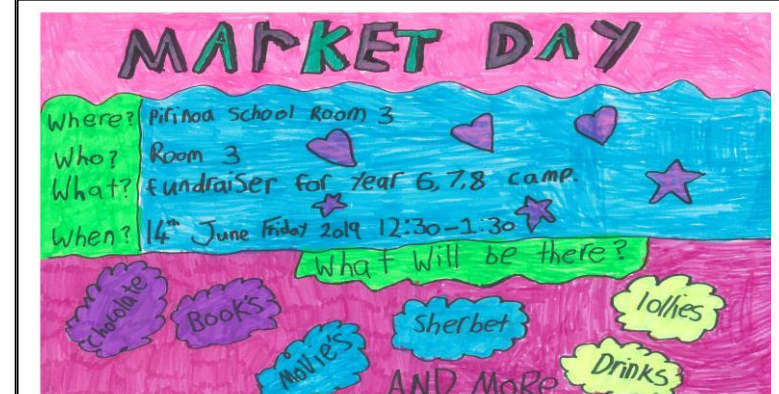 MARKET DAY
Where? Pirinoa School Room 3
Who? Room 3
What? fundraiser for year 6,7,8 camp.
When? 14th June Friday 2019 12:30-1:30
What Will be there?
Chocolate
Book's
Movie's
Sherbet
lollies
Drinks
AND MORE